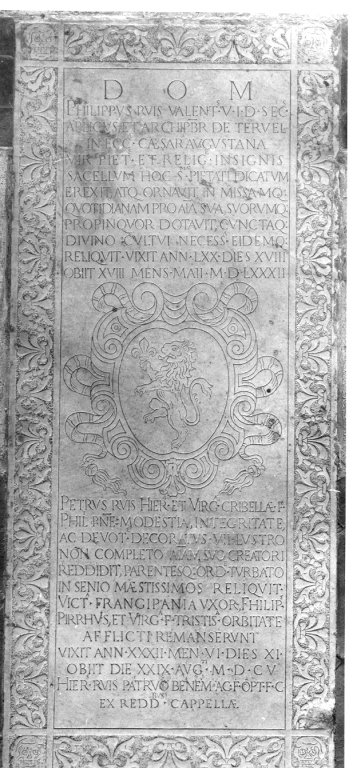 D O M
PHILIPPVS·RVIS·VALENT·V·I·D·SEC·
ET·ARCHIPBR DE TERVEL
IN ECC·CÆSARAVGVSTANA
VIR PIET·ET·RELIG·INSIGNIS
SACELLVM HOC·S·PIETATI DICATVM
EREXIT·ATQ·ORNAVIT, IN MISSAMQ·
QVOTIDIANAM PRO AIA·SVA, SVORVMQ·
PROPINQVOR DOTAVIT, CVNCTAQ·
DIVINO·CVLTVI·NECESS·EIDEMQ·
RELIQVIT·VIXIT ANN·LXX·DIES XVIII
OBIIT XVIII MENS·MAII·M·D·LXXXII
PETRVS RVIS HIER·ET VIRG·CRIBELLÆ·F·
PHIL· MODESTIA, INTEGRITATE
AC DEVOT·DECORATVS·VII·LVSTRO
NON COMPLETO AIAM, SVO CREATORI
REDDIDIT, PARENTESQ·ORD·TVRBATO
IN SENIO MÆSTISSIMOS RELIQVIT·
VICT·FRANGIPANIA VXOR·PHILIP·
PIRRHVS, ET VIRG·P·TRISTIS·ORBITATE
AFFLICTI REMANSERVNT
VIXIT ANN·XXXII·MEN·VI·DIES XI·
OBIIT DIE XXIX·AVG·M·D·C·V
HIER·RVIS PATRVO BENEM·AC·F·OPT·F·C
EX REDD·CAPPELLÆ